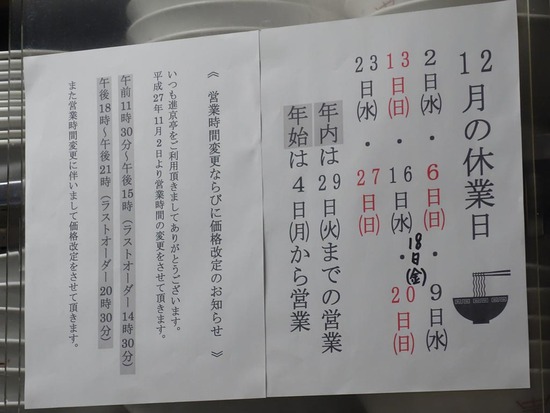 12月の休業日
2日(水)・6日(日)・9日(水)
13日(日)・16日(水)・18日(金)・20日(日)
23日(水)・27日(日)
年内は29日(火)までの営業
年始は4日(月)から営業
《 営業時間変更ならびに価格改定のお知らせ 》
いつも進京亭をご利用頂きましてありがとうございます。
平成27年11月2日より営業時間の変更をさせて頂きます。
午前11時30分～午後15時(ラストオーダー14時30分)
午後18時～午後21時(ラストオーダー20時30分)
また営業時間変更に伴いまして価格改定をさせて頂きます。